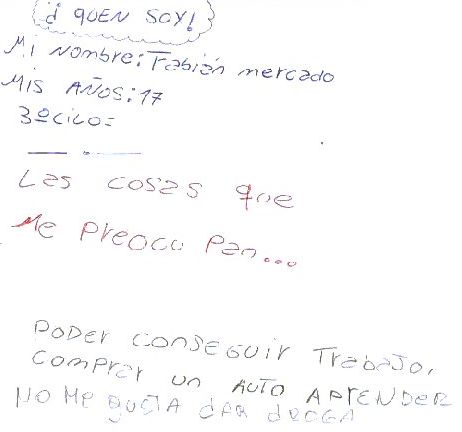 ¿QUEN SOY!
Mi Nombre: Fabián mercado
MIS AÑOS: 17
3º CiLO=
Las cosas que
Me Preocu Pan...
PODER CONSEGUIR TrabaJO,
comprar un AUTO APrENDER
NO Me GUSTA dROGA